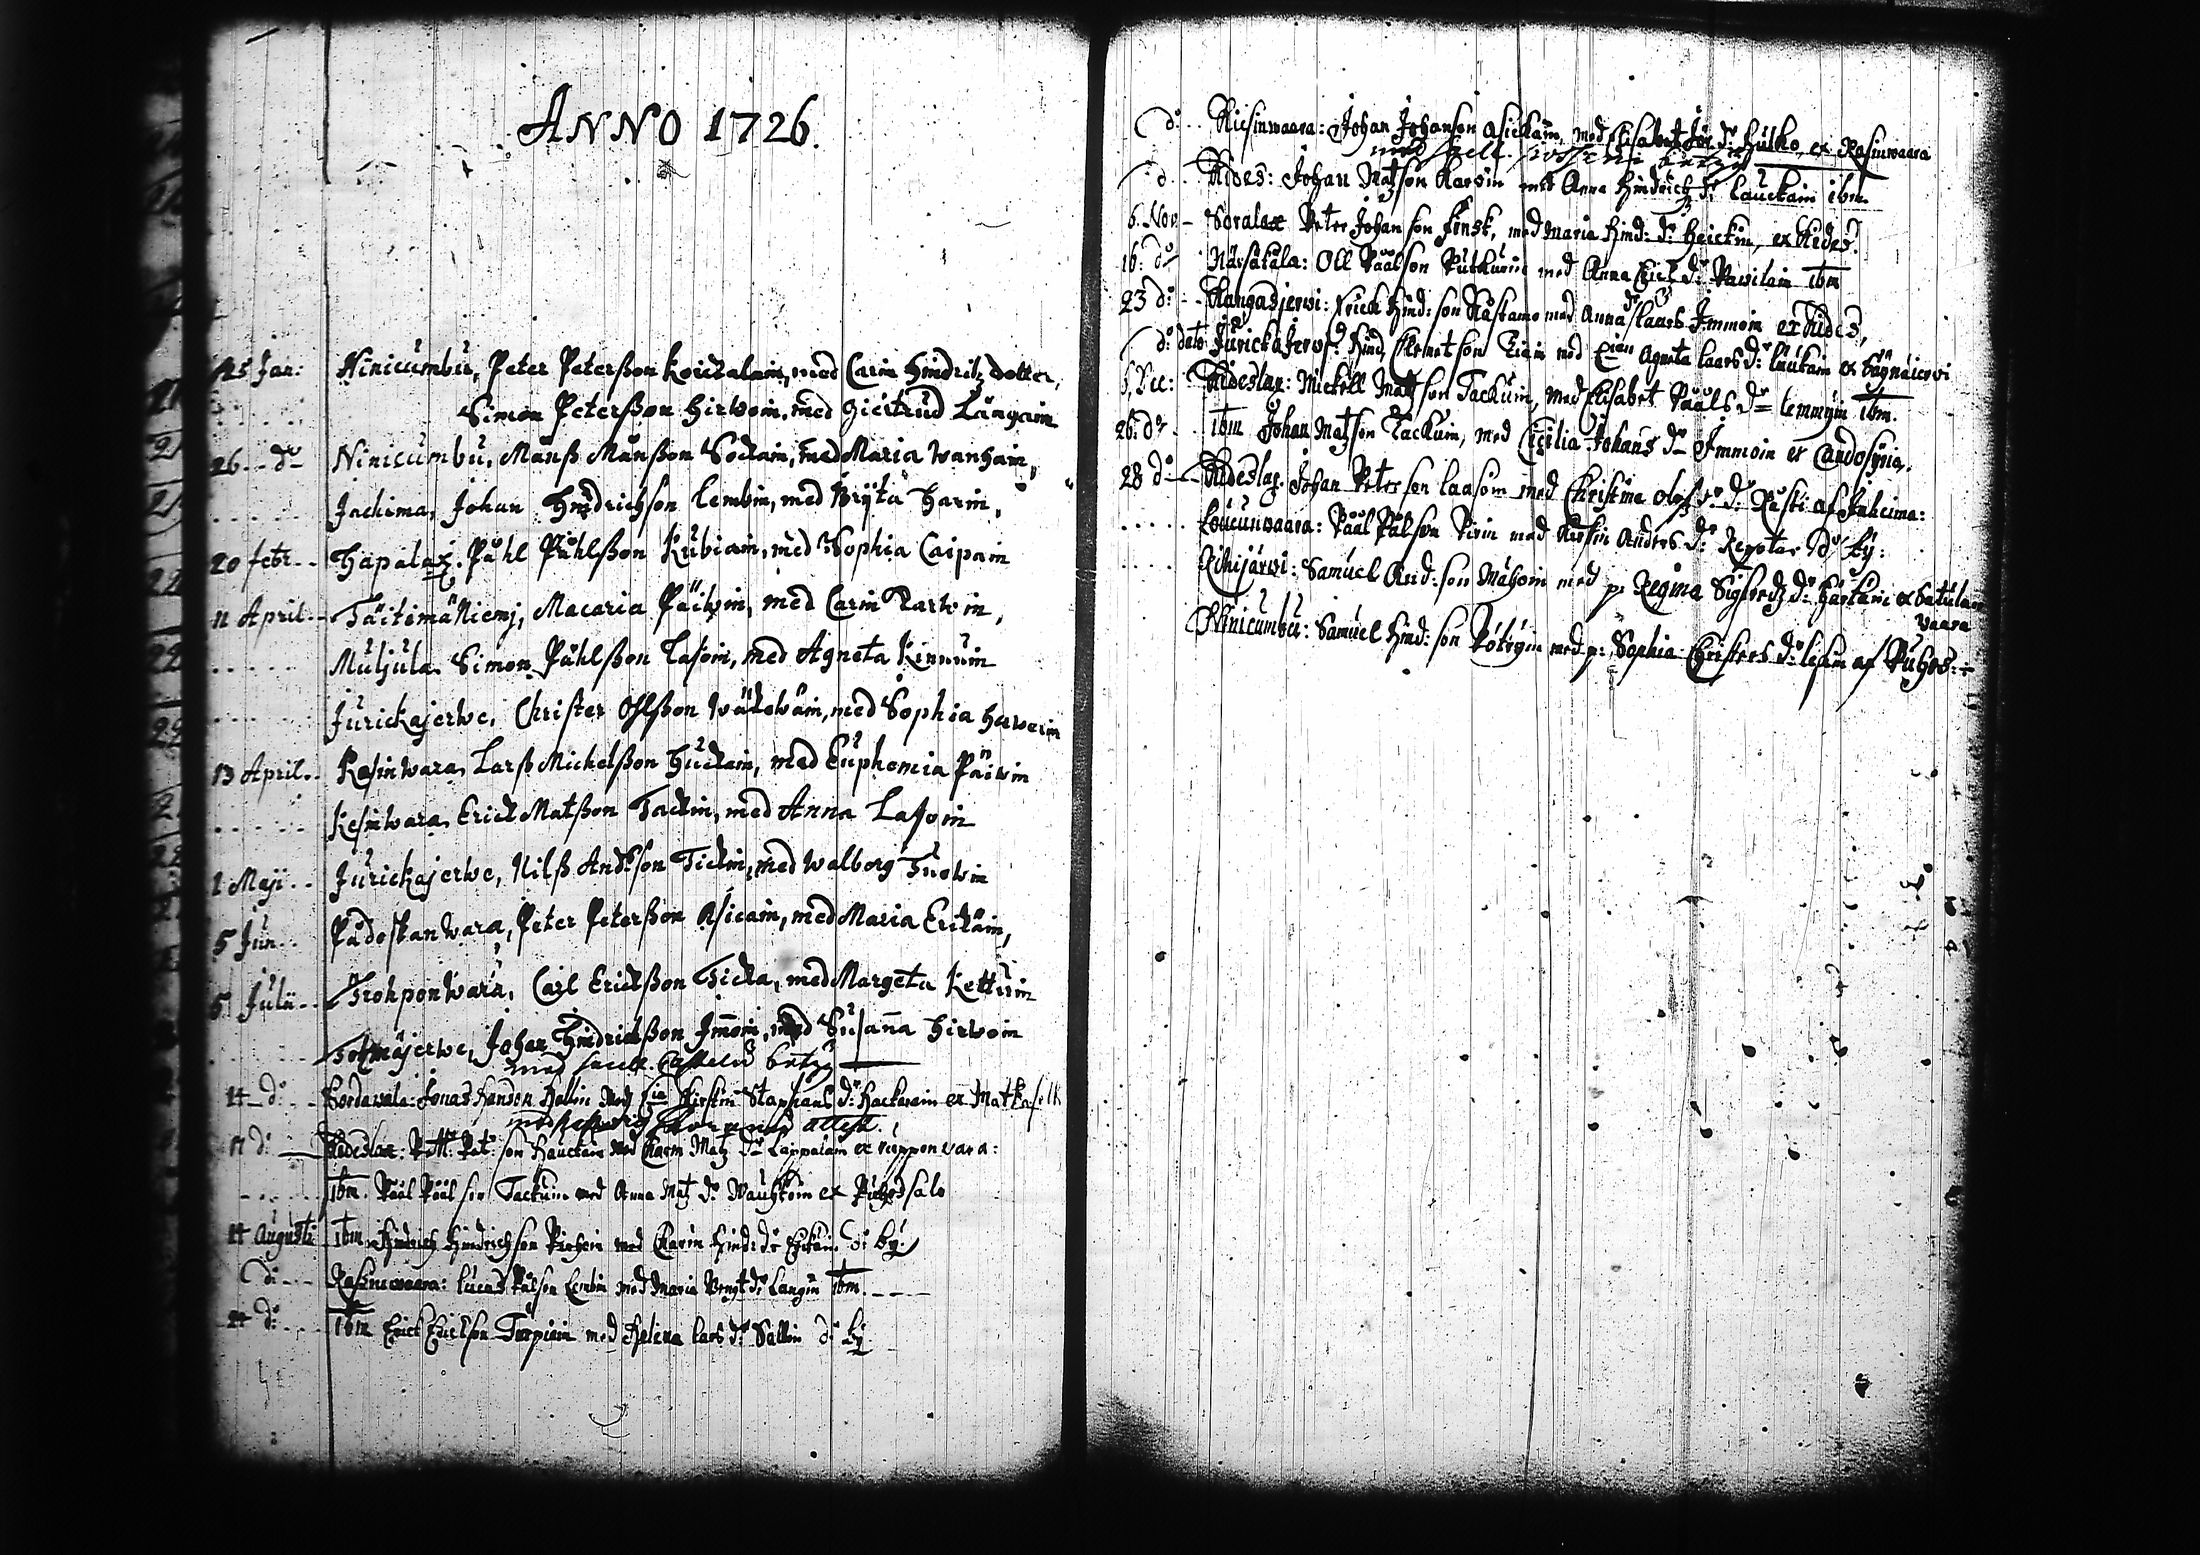 ANNO 1726.
25 Jan: Ninicumbu, Peter Peterßon Koritalain, med Carin Hindritz dotter,
Simon Peterßon Hirwoin, med Giertrud Längain
26 - do Ninicumbu, Månß Månßon Sockain, med Maria Wanhain,
Jachima, Johan Hindrichson Lembin, med Bryta Harin,
20 febr. Hapalax, Påhl Påhlßon Kubiain, med Sophia Caipain
11 April. Täitimä Niemj, Macaria Päiwin, med Carin Karwin,
Muljula. Simon Påhlßon Lasoin, med Agneta Kinnuin
Jurickajerwe, Christer Ohlßon Wäkewäin, med Sophia Herwein
13 April. Rasinwara, Larß Michelßon Huckain, med Euphemia Päiwin
Kesinwara, Erick Matßon Tackin, med Anna Lasoin
1 Maji. Jurickajerwe, Nilß Andersson Tickin, med Walborg Tuowin
5 Jun. Pådoskanwara, Peter Peterßon Asicain, med Maria Erikäin,
5 Julii. Trohponwara, Carl Erickßon Ticka, med Margeta Kettuin
Totmäjerwe, Johan Hindrickßon Jmoin, med Susanna Hirwoin
med betyg
14 do Sordawala: Jonas Hansson Hallin med Kirstin Staphans dr Hackarain ex Matkaselk
attest.
17 do Kideslax: Pett: Pet: son Hauckain med Carin Matz dr Lappalain ex roppon vara:
ibm. Påål Pååls son Tackuin med Anna Matz dr Wauhkoin ex Puhossalo
14 Augusti ibm Hindrich Hindrichson Pirhoin med Carin Hind: dr do by.
do Rasinwaara: Lucas Pålson Lembin med Maria Bengt dr Langin ibm.
24 do ibm Erick Erickson Turpiain med Helena Lars dr Sallin do by
do Kiesinwaara: Johan Johanson Asickain, med Elisabet dr Hulko, ex Rasinwaara
med betyg
do Kides: Johan Matzson Karwin med Anna Hindrichz dr Lauckain ibm.
6. Nov. Soralax Peter Johanson Finsk, med Maria Hind: dr Heickin, ex Kides.
16. do Närsäkälä: Oll Päälson Putkuin med Anna Erich dr Pawilain ibm
23 do Kangasjerwi: Erich Hind: son Rastamo med Anna Laars dr Immoin ex Kides,
do dato Jurickajerwi Hind Clemetson med Agneta Laars dr Laukain ex
5. Dec: Kideslax: Mickell Matzson Tackuin, med Elisabet Pååls dr Lemmyin ibm.
26. do ibm Johan Matzson Tackuin, med Cicilia Johans dr Immoin ex Candosyria.
28 do Kideslax. Johan Peterson Laasoin med Christina Olofs dr Rasti af Juheima:
Loucunwaara: Pååll Pålson Pirin med Kirstin Anders dr do by:
Riihijärwi: Samuel And: son Mähoin med p: Regina Sigfredz dr ex
vaara
Ninicumbu: Samuel Hind: son Potrÿin med p: Sophia Christers dr af Puhos.